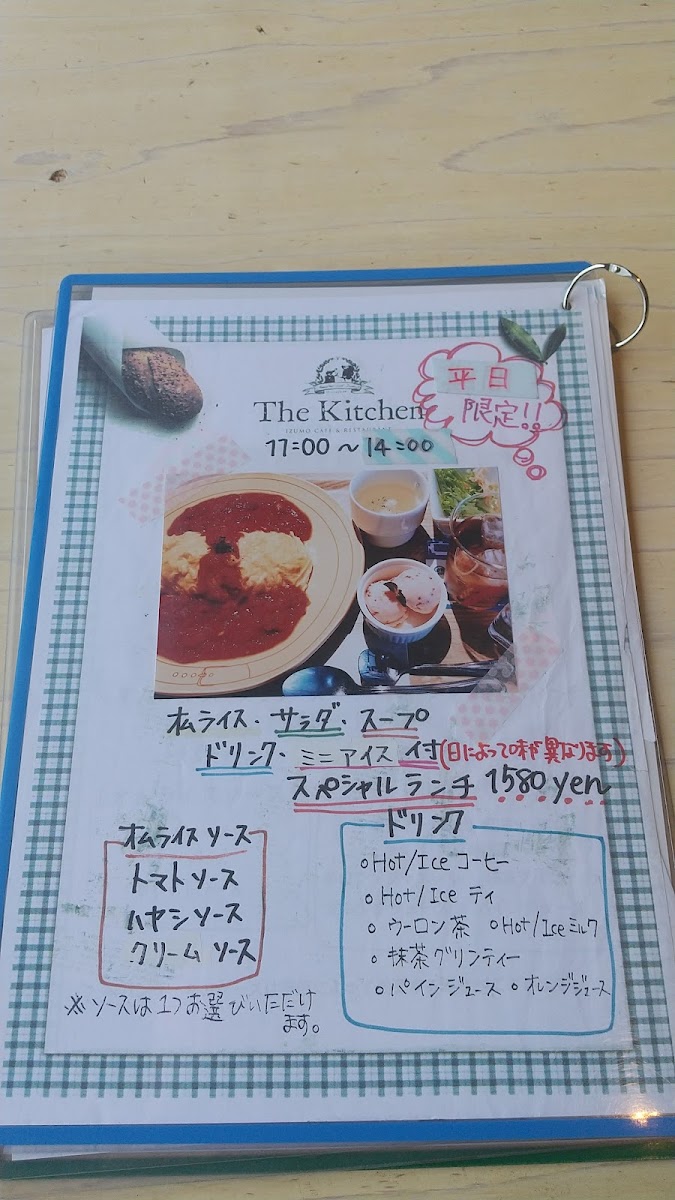 平日
限定!!
The Kitchen
IZUMO CAFE & RESTAURANT
11:00 ~ 14:00
オムライス・サラダ・スープ
ドリンク・ミニアイス付(日によって味が異なります)
スペシャルランチ 1580 yen
オムライスソース
トマトソース
ハヤシソース
クリームソース
※ソースは1つお選びいただけ
ます。
ドリンク
○Hot/Ice コーヒー
○Hot/Ice ティ
○ウーロン茶 ○Hot/Iceミルク
○抹茶グリンティー
○パインジュース ○オレンジジュース